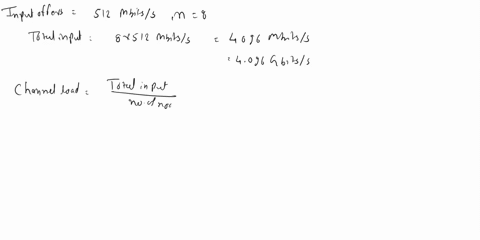 Input offers = 512 Mbits/s , n = 8
Total input = 8x512 Mbits/s = 4.096 Mbits/s
= 4.096 Gbits/s
Channel load = Total input
no of noc